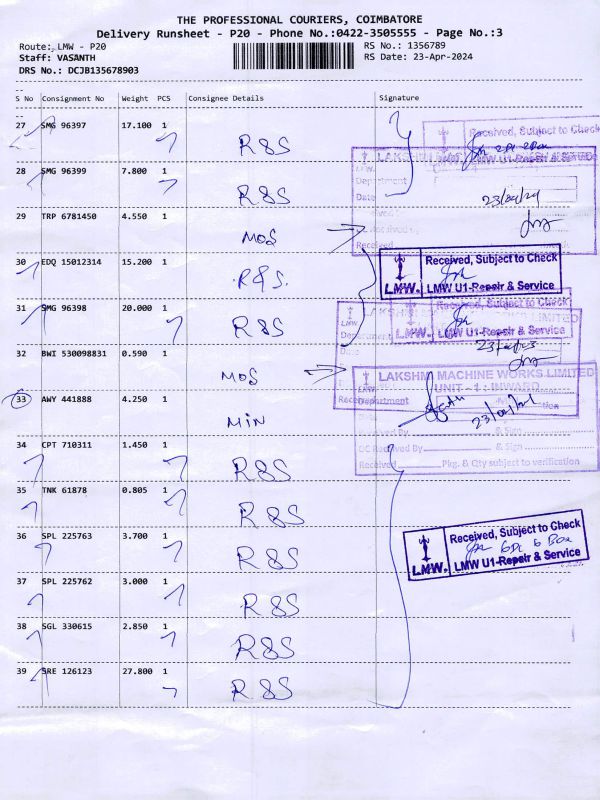 THE PROFESSIONAL COURIERS, COIMBATORE
Delivery Runsheet - P20 - Phone No.:0422-3505555 - Page No.:3
Route: LMW - P20
RS No.: 1356789
Staff: VASANTH
RS Date: 23-Apr-2024
DRS No.: DCJB135678903
S No Consignment No Weight PCS Consignee Details Signature
27 SMG 96397 17.100 1 R&S
Received, Subject to Check
LMW U1-Repair & Service
28 SMG 96399 7.800 1 R&S
Department
Date
23/04/24
29 TRP 6781450 4.550 1 MOS
Received
30 EDQ 15012314 15.200 1 R&S.
Received, Subject to Check
LMW. LMW U1-Repair & Service
31 SMG 96398 20.000 1 R&S
Received, Subject to Check
LMW U1-Repair & Service
32 BWI 530098831 0.590 1 MOS
LAKSHMI MACHINE WORKS LIMITED
UNIT - 1 : INWARD
33 AWY 441888 4.250 1 MIN
Department
23/04/24
Received By & Sign
34 CPT 710311 1.450 1 R&S
DC Received By & Sign
Received Pkg. & Qty subject to verification
35 TNK 61878 0.805 1 R&S
36 SPL 225763 3.700 1 R&S
Received, Subject to Check
6 Box
LMW. LMW U1-Repair & Service
37 SPL 225762 3.000 1 R&S
38 SGL 330615 2.850 1 R&S
39 SRE 126123 27.800 1 R&S